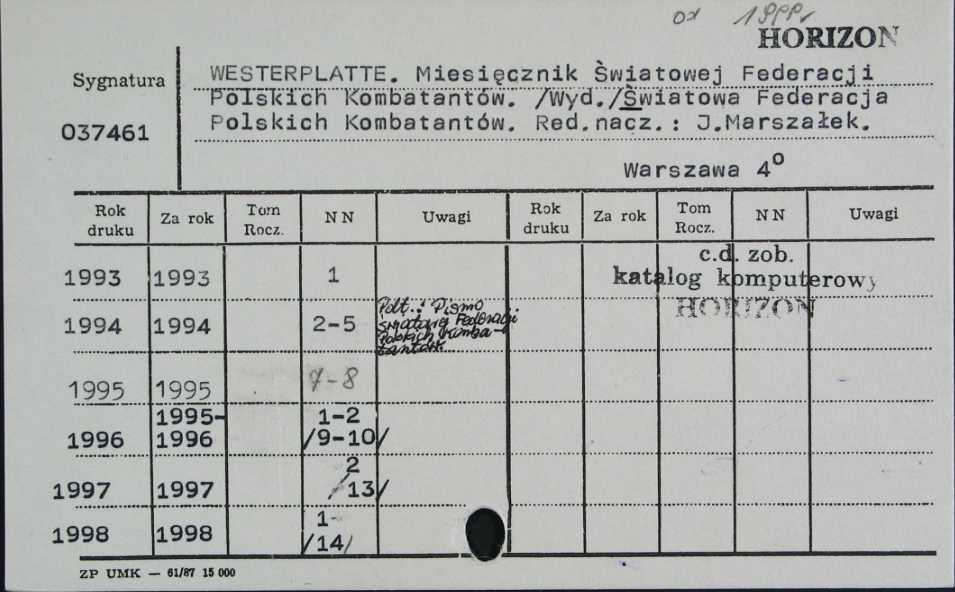 od 1999r
HORIZON
Sygnatura
037461
WESTERPLATTE. Miesięcznik Światowej Federacji
Polskich Kombatantów. /Wyd./Światowa Federacja
Polskich Kombatantów. Red.nacz.: J.Marszałek.
Warszawa 4º
Rok druku Za rok Tom Rocz. NN Uwagi Rok druku Za rok Tom Rocz. NN Uwagi
c.d. zob.
katalog komputerowy
HORIZON
1993 1993 1
1994 1994 2-5 Podt.: Pismo
Światowej Federacji
Polskich Komba-
tantów.
1995 1995 7-8
1996 1995-1996 1-2 /9-10/
1997 1997 2 /13/
1998 1998 1- /14/
ZP UMK — 61/87 15 000